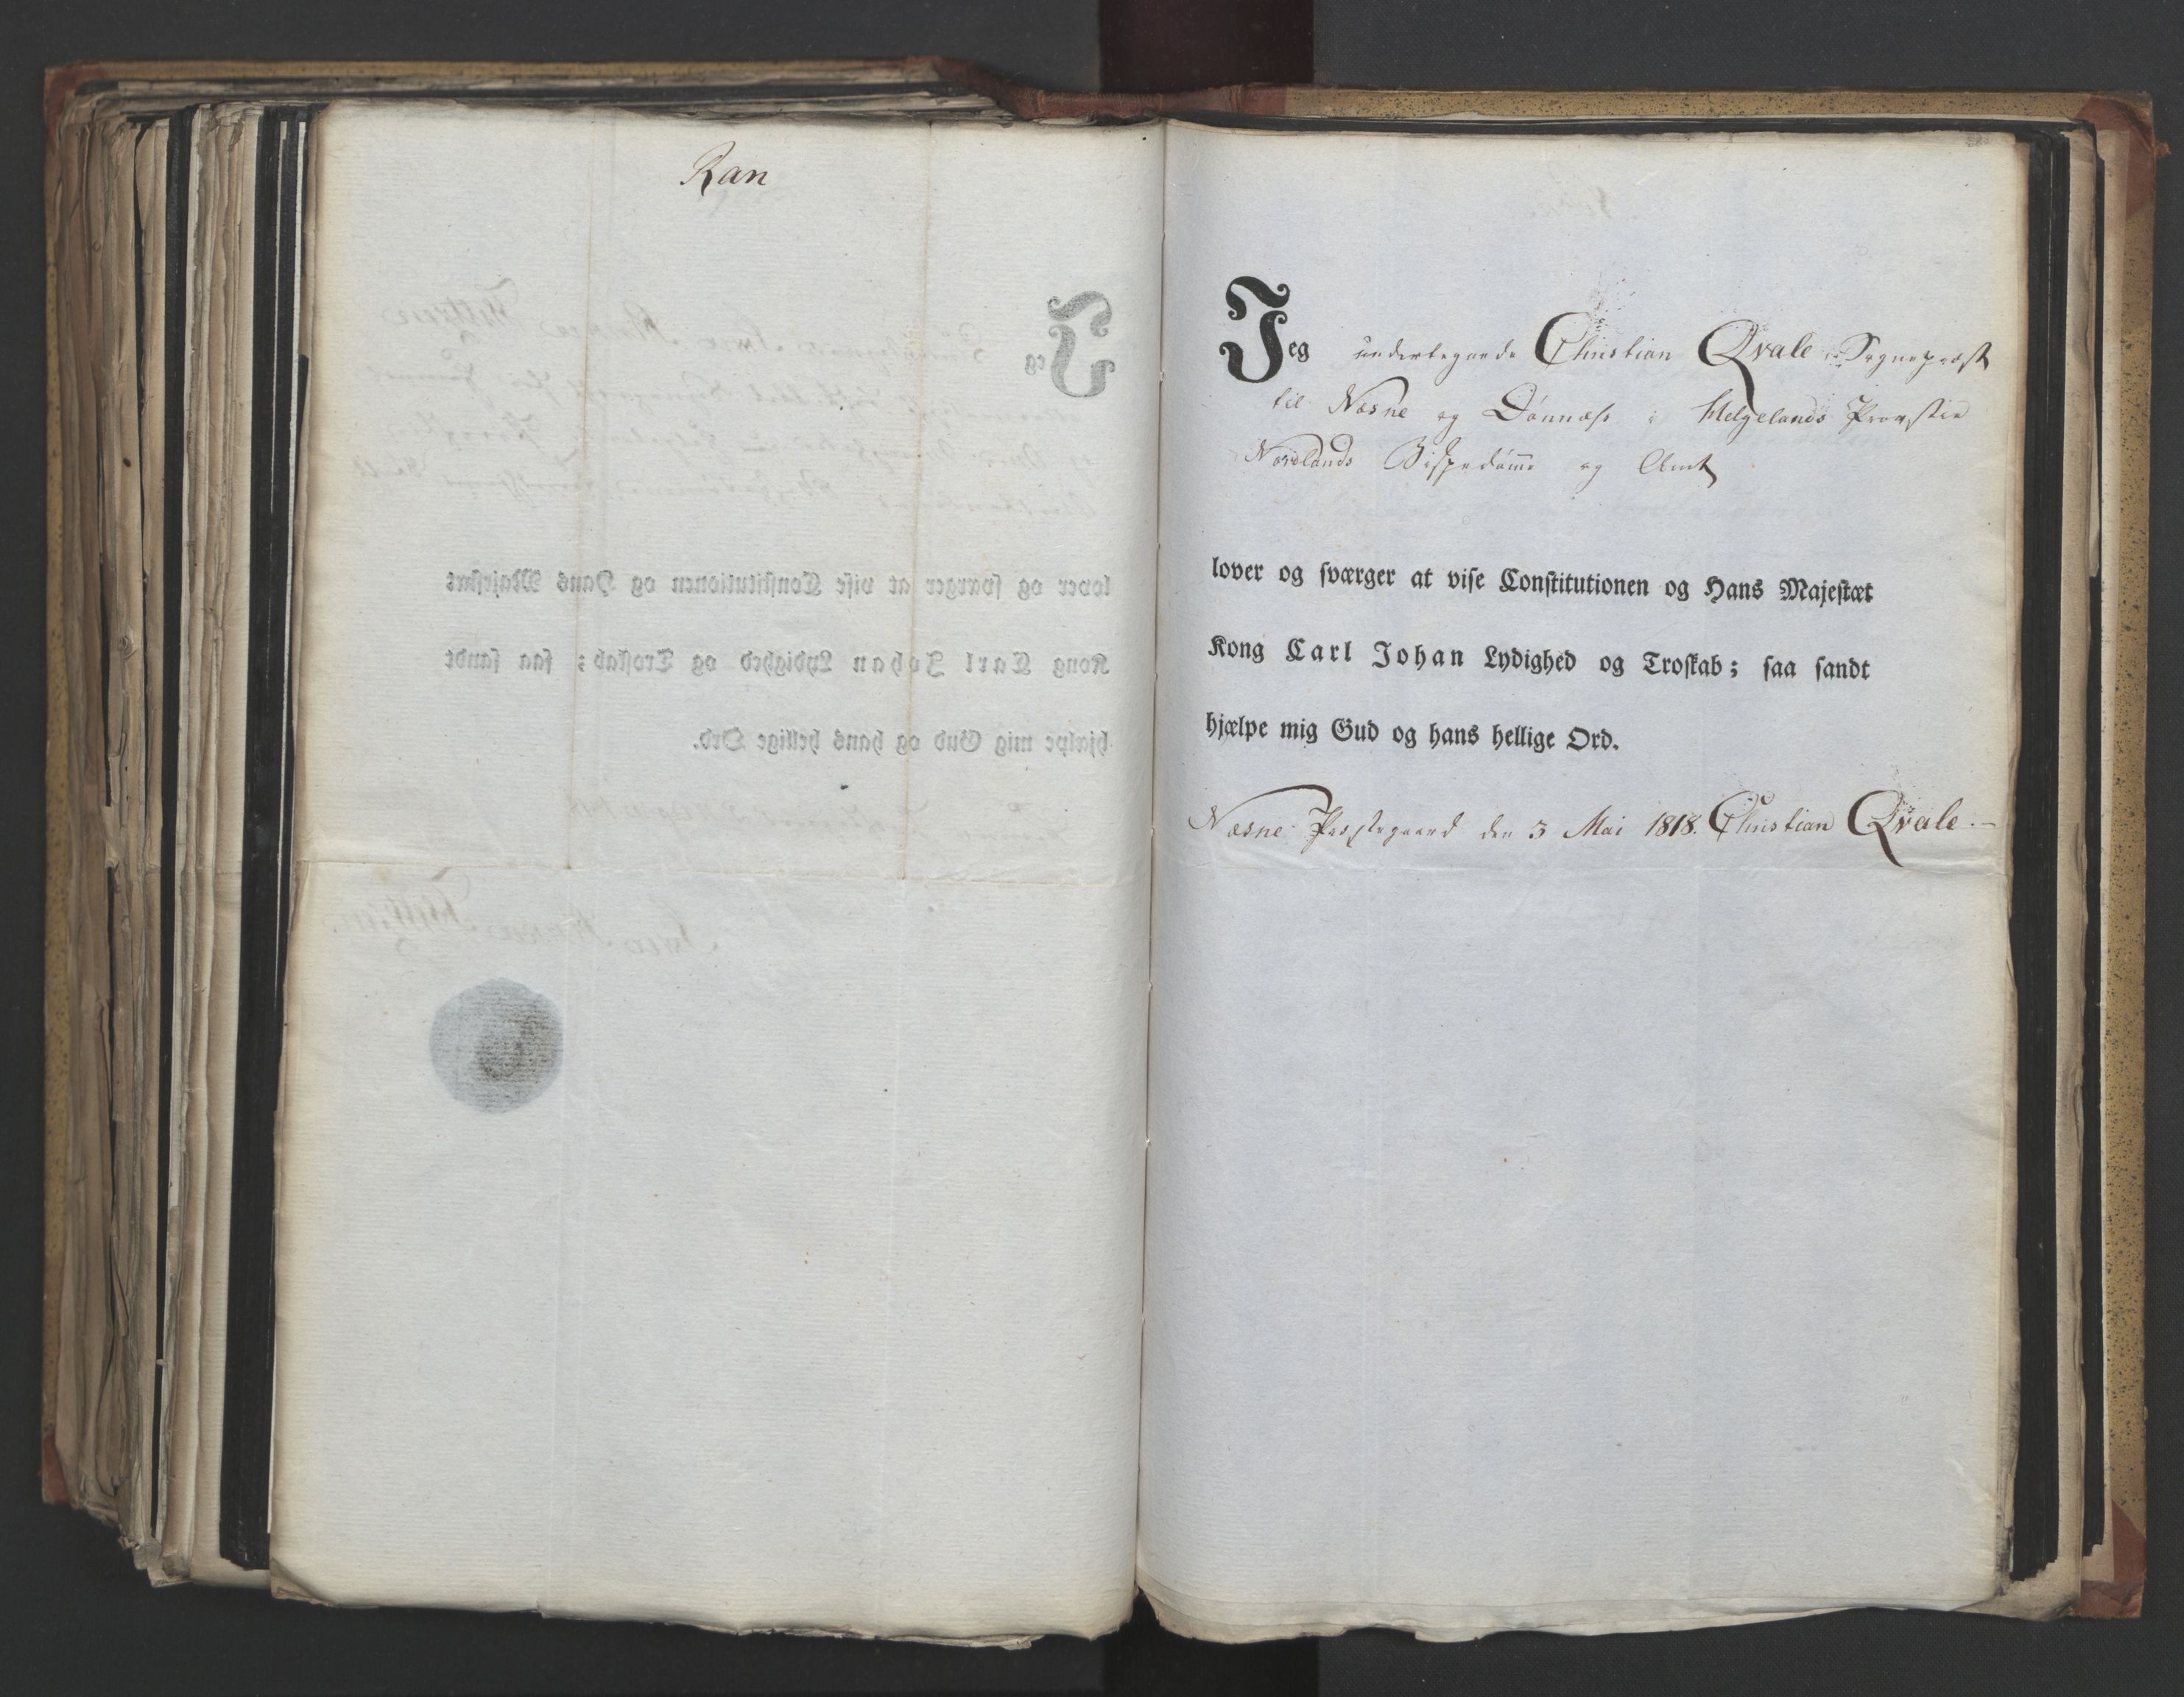 Ran
Jeg undertegnede Christian Qvale Sognepræst
til Næsne og Dønnæss i Helgelands Provstie
Nordlands Bispedømme og Amt
lover og sværger at vise Constitutionen og Hans Majestæt
Kong Carl Johan Lydighed og Troskab; saa sandt
hjælpe mig Gud og hans hellige Ord.
Næsne Præstegaard den 3 Mai 1818. Christian Qvale.